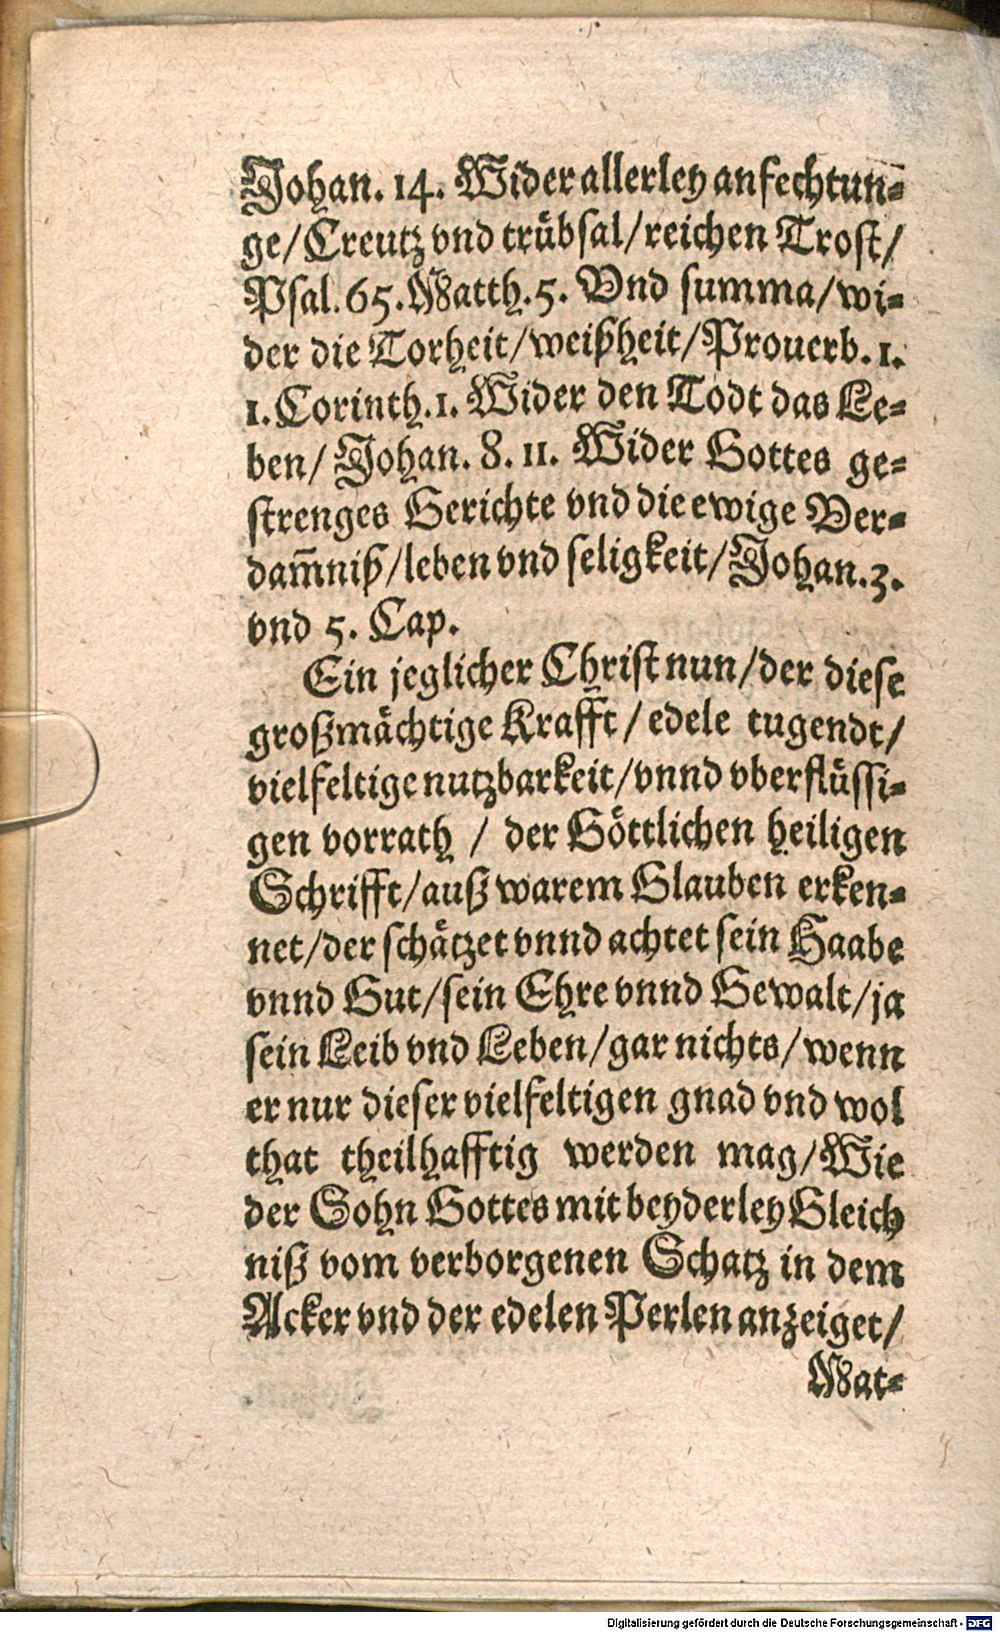 Johan. 14. Wider allerley anfechtun⸗
ge/Creutz vnd trübsal/reichen Trost/
Psal. 65. Matth. 5. Vnd summa/wi⸗
der die Torheit/weißheit/Prouerb. 1.
1. Corinth. 1. Wider den Todt das Le⸗
ben/ Johan. 8. 11. Wider Gottes ge⸗
strenges Gerichte vnd die ewige Ver⸗
dam̄niß/leben vnd seligkeit/Johan. 3.
vnd 5. Cap.
Ein jeglicher Christ nun/der diese
großmächtige Krafft/ edele tugendt/
vielfeltige nutzbarkeit/vnnd vberflüssi⸗
gen vorrath / der Göttlichen heiligen
Schrifft/auß warem Glauben erken⸗
net/der schätzet vnnd achtet sein Haabe
vnnd Gut/sein Ehre vnnd Gewalt/ja
sein Leib vnd Leben/gar nichts/wenn
er nur dieser vielfeltigen gnad vnd wol
that theilhafftig werden mag/Wie
der Sohn Gottes mit beyderley Gleich
niß vom verborgenen Schatz in dem
Acker vnd der edelen Perlen anzeiget/
Mat⸗
Digitalisierung gefördert durch die Deutsche Forschungsgemeinschaft - DFG